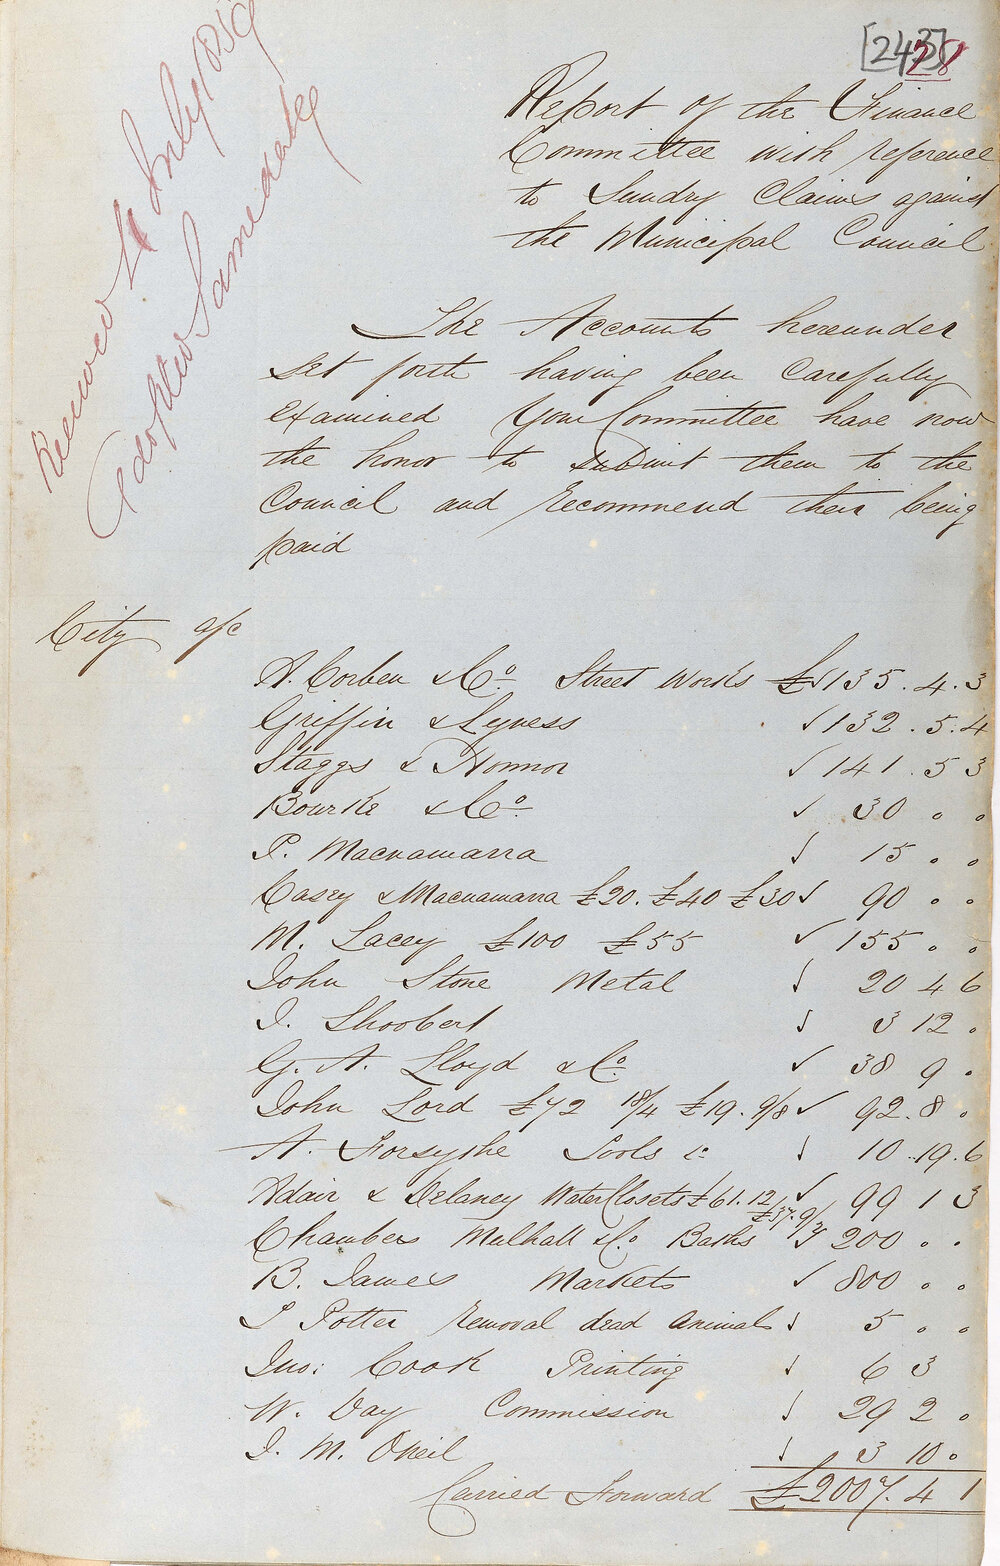 [243]
28
Received 4 July 1859
Adopted Same date
Report of the Finance
Committee with reference
to Sundry Claims against
the Municipal Council
The Accounts hereunder
set forth having been Carefully
examined Your Committee have now
the honor to submit them to the
Council and recommend their being
paid
City a/c
A. Corben & Co. Street Works £ ✓ 135 . 4 . 3
Griffin & Lyness ✓ 132 . 5 . 4
Staggs & Honnor ✓ 141 . 5 3
Bourke & Co. ✓ 30 " "
P. Macnamarra ✓ 15 " "
Casey & Macnamarra £20. £40 £30 ✓ 90 " "
M. Lacey £100 £55 ✓ 155 " "
John Stone Metal ✓ 20 4 6
I. Shoobert ✓ 3 12 "
G. A. Lloyd & Co. ✓ 38 9 "
John Lord £72 18/4 £19. 9/8 ✓ 92. 8 "
A. Forsythe Tools &c ✓ 10 . 19 . 6
Adair & Delaney Water Closets £61. 12/ £37. 9/3 ✓ 99 1 3
Chambers Mulhall & Co Baths ✓ 200 " "
B. James Markets ✓ 800 " "
P Potter removal dead animals ✓ 5 " "
Jno: Cook Printing ✓ 6 3
W. Day Commission ✓ 29 2 "
J. M. Oneil ✓ 3 10 "
Carried Forward £2007. 4 1